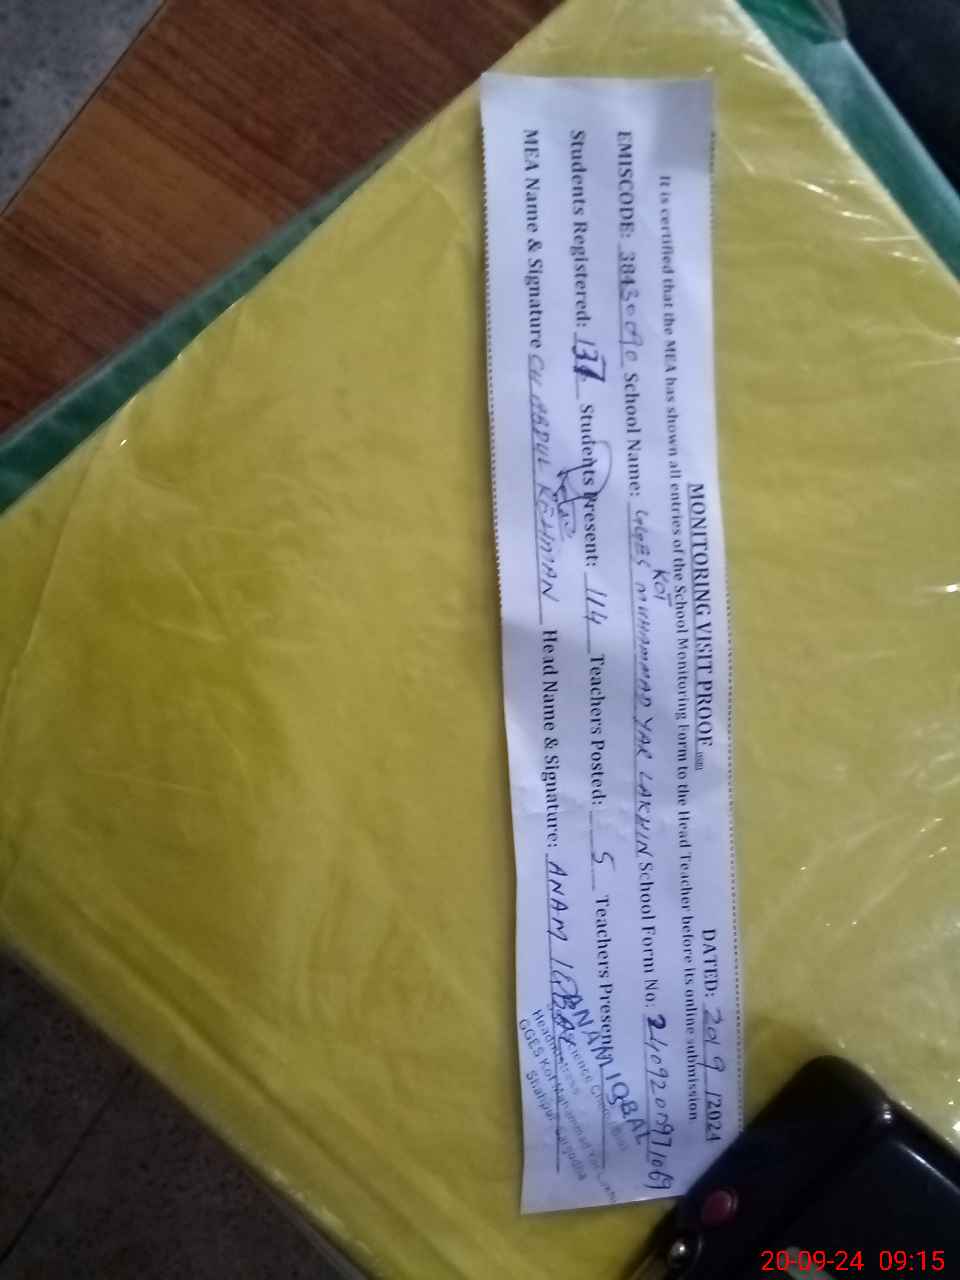 MONITORING VISIT PROOF (SSB) DATED: 20/9/2024
It is certified that the MEA has shown all entries of the School Monitoring Form to the Head Teacher before its online submission
EMISCODE: 38430090 School Name: GGES KOT MUHAMMAD YAR LAKHIN School Form No: 240920091069
Students Registered: 137 Students Present: 114 Teachers Posted: 5 Teachers Present:
MEA Name & Signature CH ABDUL REHMAN Head Name & Signature: ANAM IQBAL
ANAM IQBAL
Headmistress
GGES Kot Muhammad Yar
Shahpur, Sargodha
20-09-24 09:15